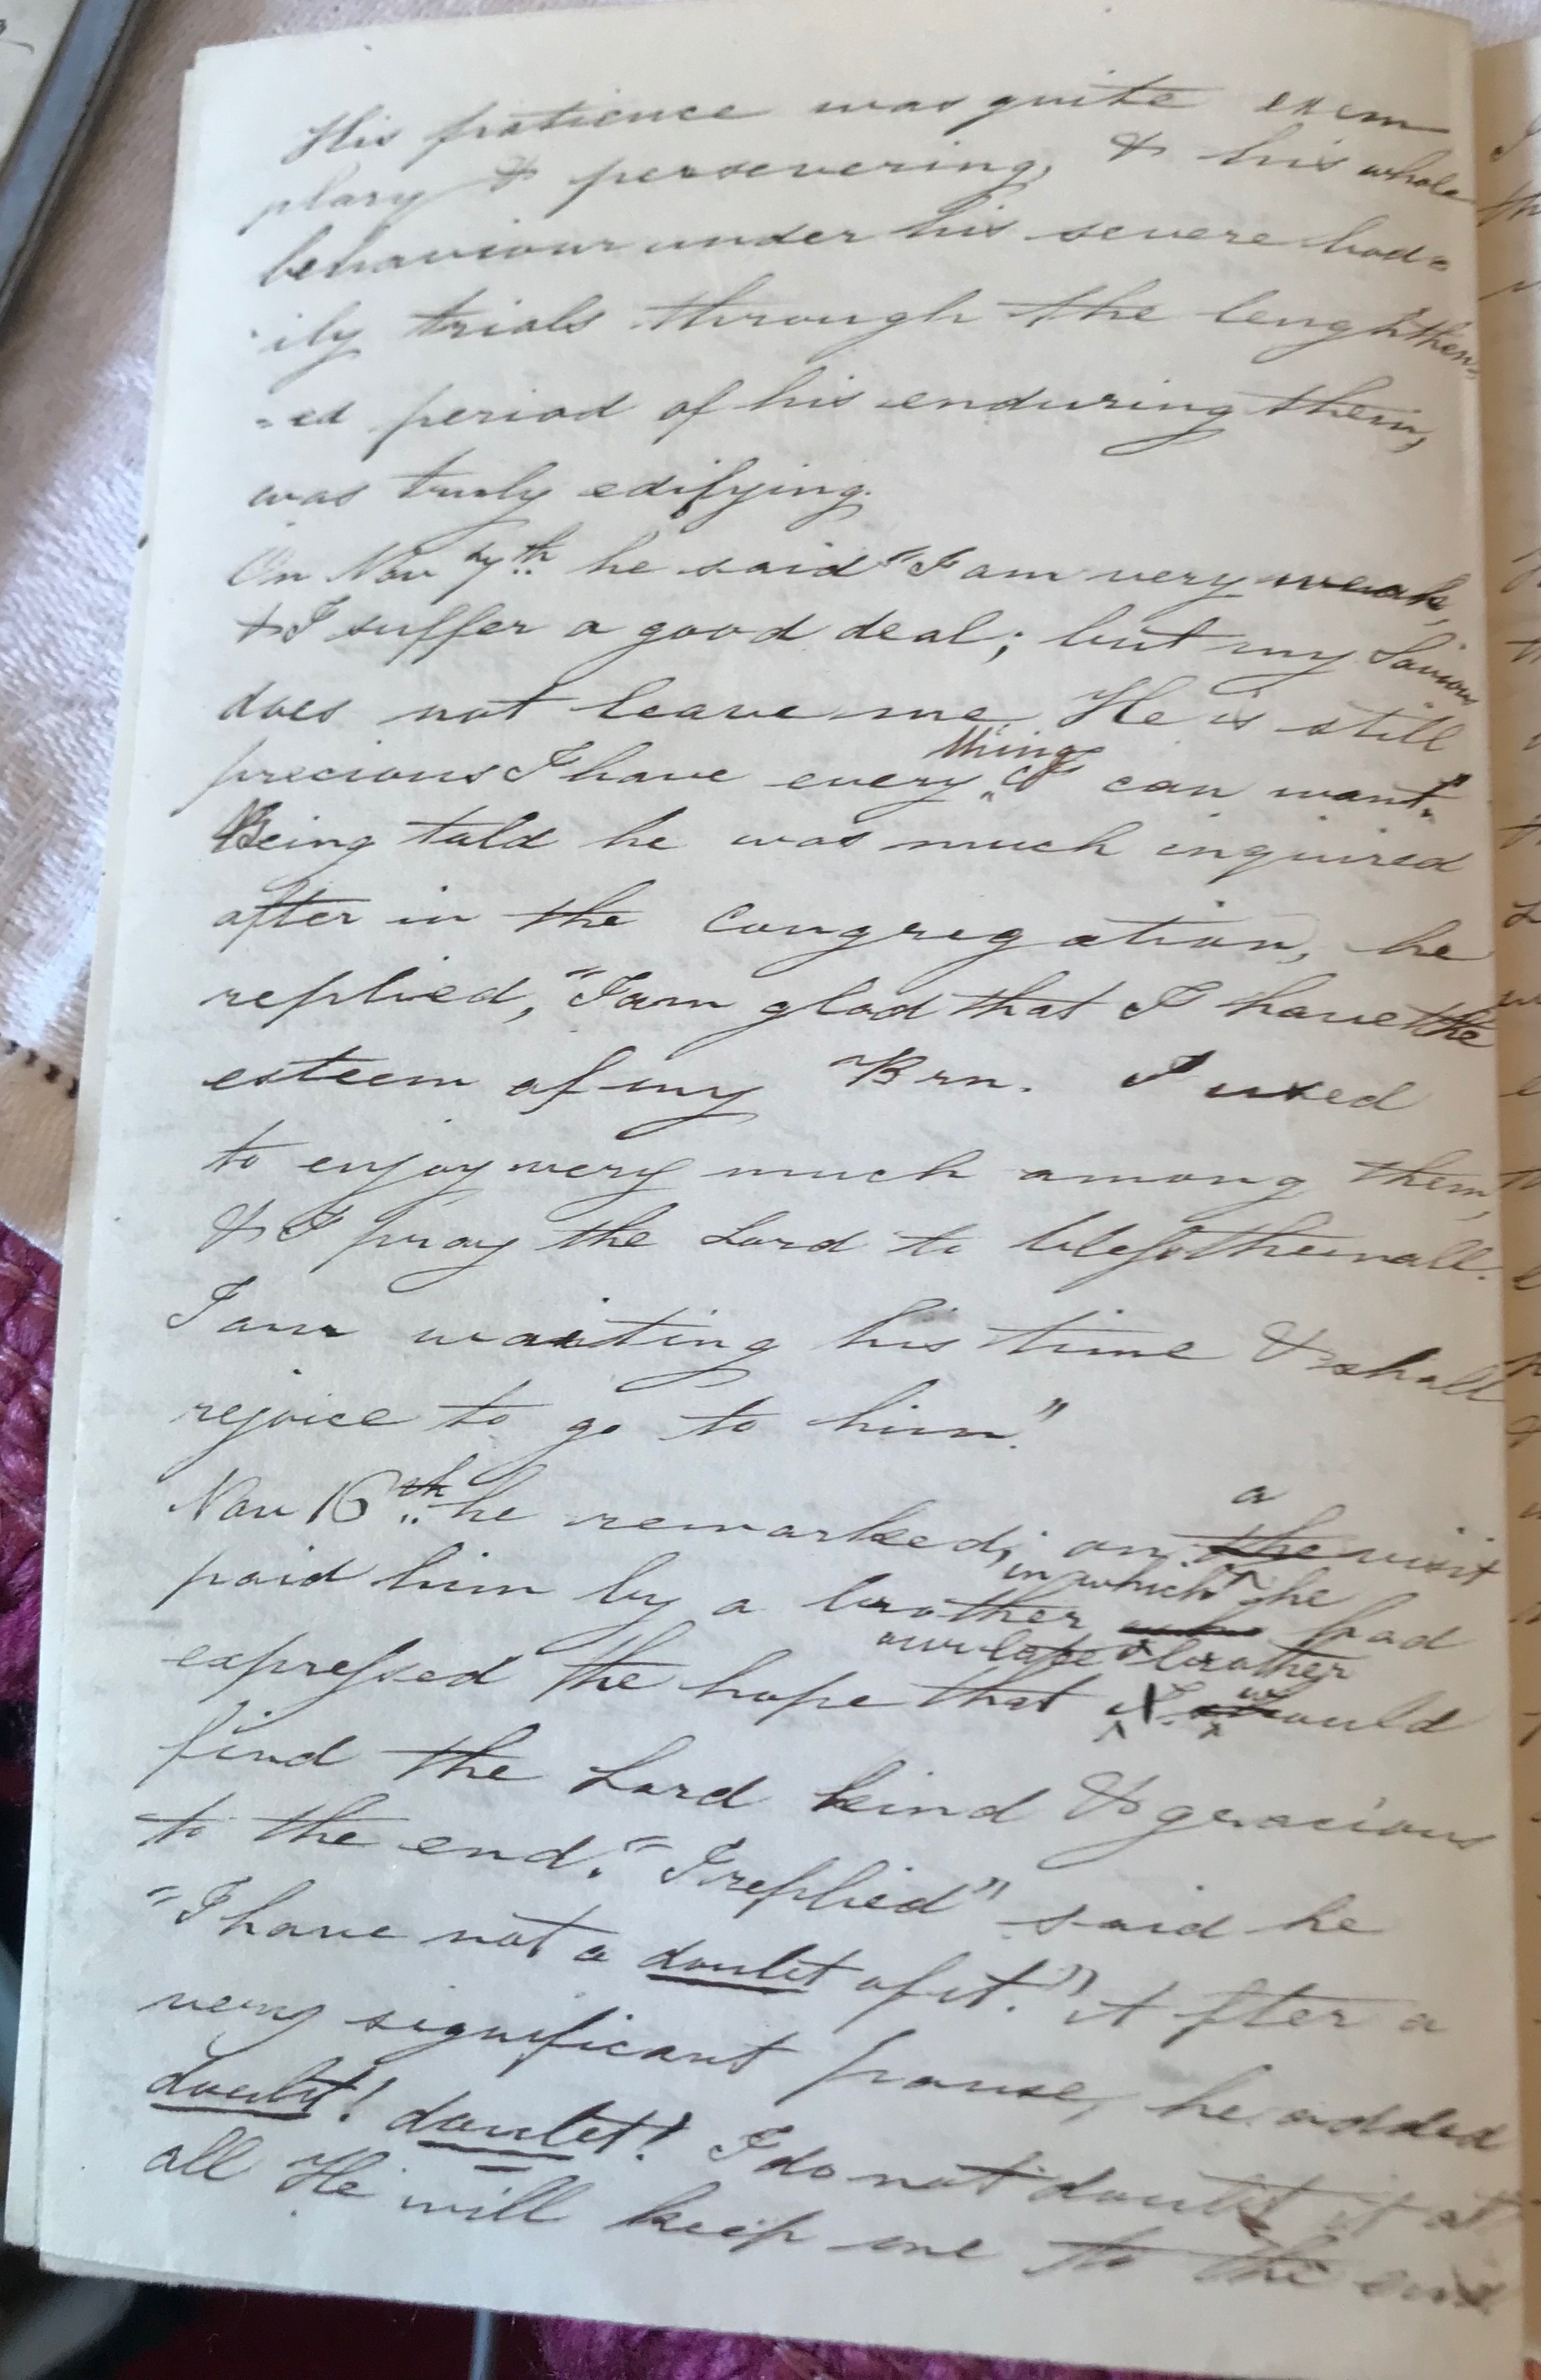 His patience was quite exem
plary & persevering, & his whole
behaviour under his severe bod=
ily trials through the lenghthen=
=ed period of his enduring them,
was truly edifying.
On Nov 7th he said "I am very weak,
& I suffer a good deal; but my Saviour
does not leave me. He is still
thing
precious I have every I can want."
Being told he was much inquired
after in the congregation, he
replied, "I am glad that I have the
esteem of my Brn. I used
to enjoy very much among them,
& I pray the Lord to bless them all.
I am waiting his time & shall
rejoice to go to him."
a
Nov 16th he remarked, on the visit
in which he
paid him by a brother who had
our late brother
expressed the hope that N. would
find the Lord kind & gracious
to the end. "I replied" said he
"I have not a doubt of it." After a
very significant pause, he added
doubt! doubt! I do not doubt it at
all He will keep me to the end